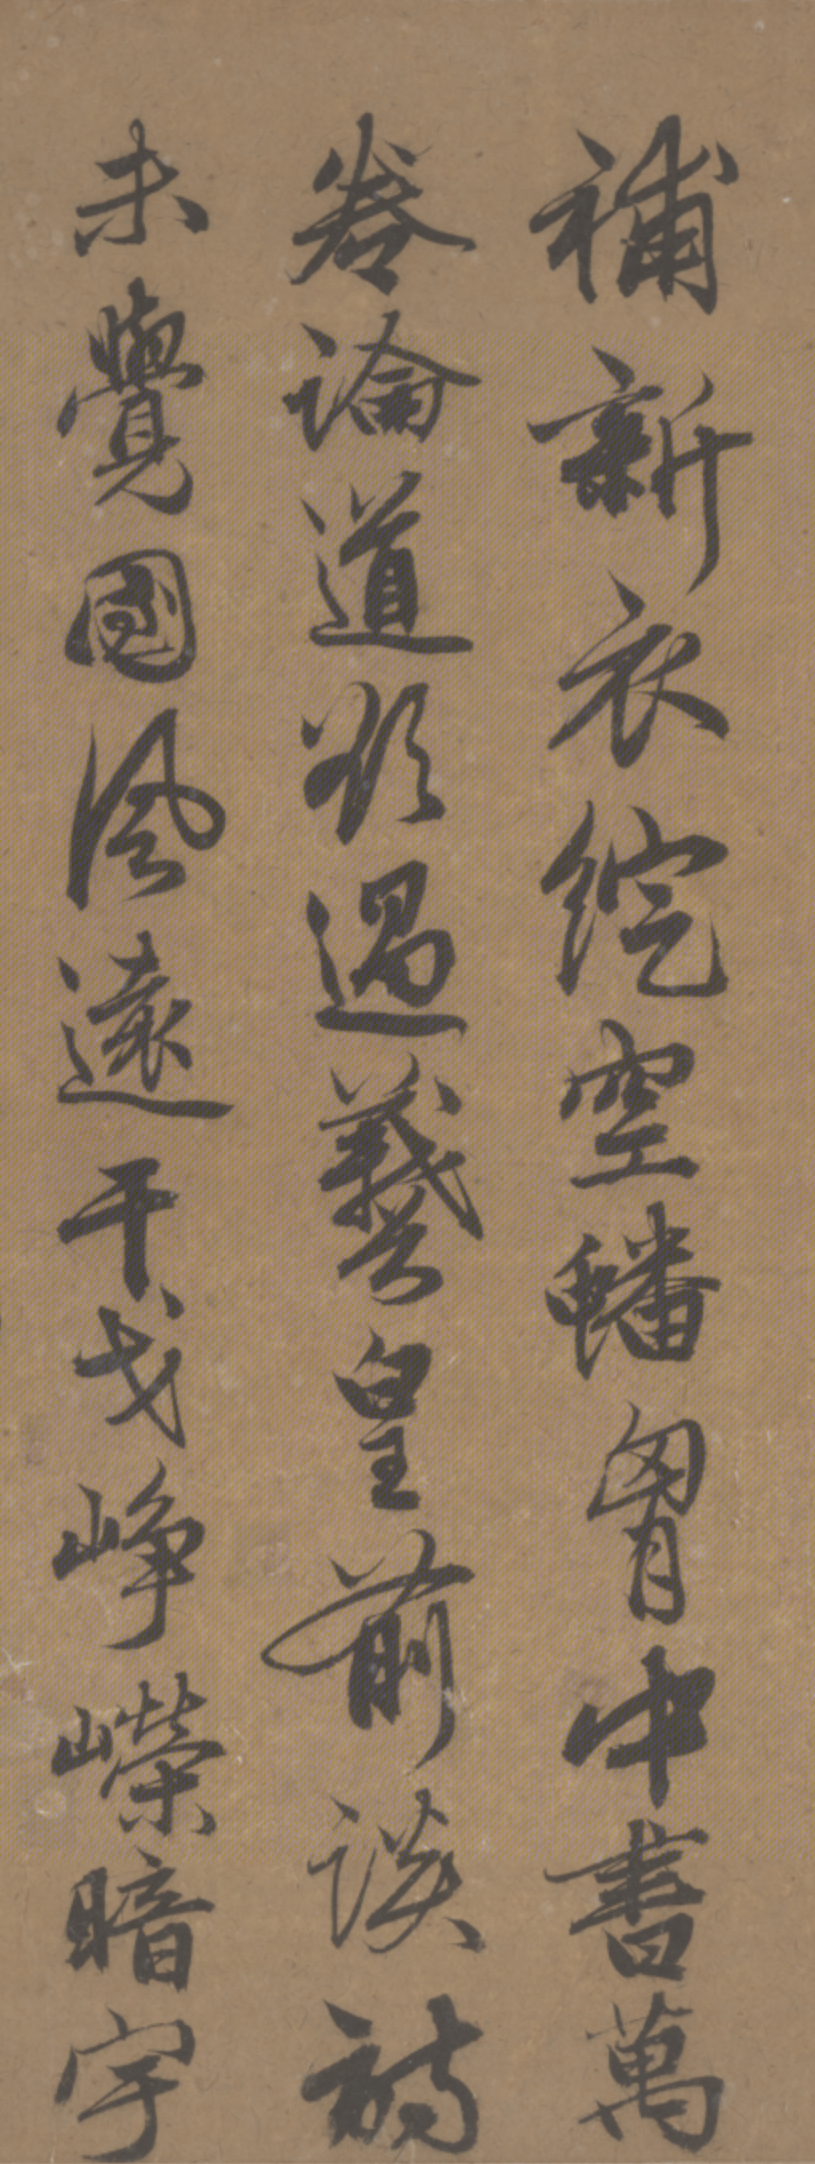 補新衣綻空蟠胷中書萬
卷論道欲過羲皇前談詩
未覺國風遠干戈崢嶸暗宇